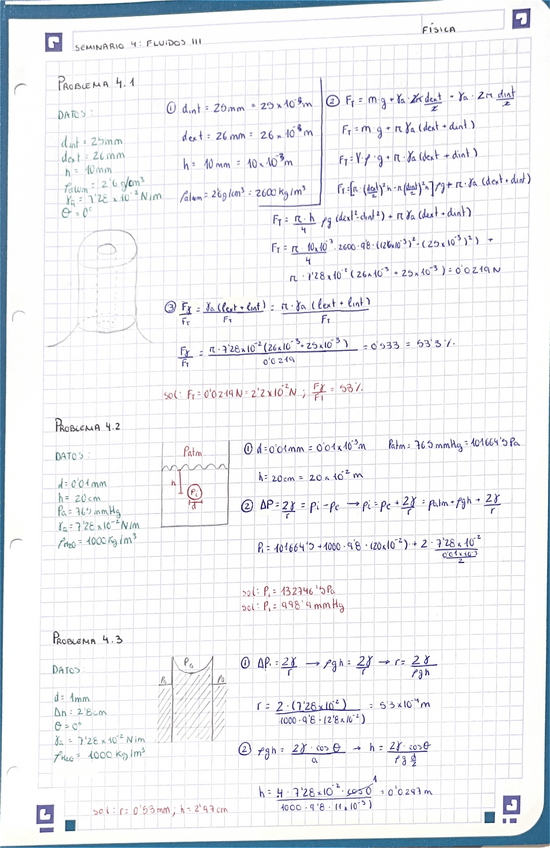 FÍSICA
SEMINARIO 4: FLUIDOS III
PROBLEMA 4.1
DATOS:
dint = 25mm
dext = 26mm
h = 10mm
ρalum = 2'6 g/cm³
γa = 7'28 × 10⁻² N/m
θ = 0°
① dint = 25mm = 25×10⁻³m
dext = 26mm = 26×10⁻³m
h = 10mm = 10×10⁻³m
ρalum = 2'6g/cm³ = 2600kg/m³
② FT = m·g + γa · 2π dext/2 + γa · 2π dint/2
FT = m·g + π γa (dext + dint)
FT = V·ρ·g + π·γa (dext + dint)
FT = [π·(dext/2)²h - π(dint/2)²h] ρg + π·γa (dext + dint)
FT = π·h/4 ρg (dext² - dint²) + π γa (dext + dint)
FT = π·10×10⁻³/4 · 2600·9'8·((26×10⁻³)² - (25×10⁻³)²) +
π·7'28×10⁻² (26×10⁻³ + 25×10⁻³) = 0'0219N
③ Fγ/FT = γa (lext + lint)/FT = π·γa (lext + lint)/FT
Fγ/FT = π·7'28×10⁻² (26×10⁻³ + 25×10⁻³)/0'0219 = 0'533 = 53'3%
sol: FT = 0'0219N = 2'2×10⁻²N ; Fγ/FT = 53%
PROBLEMA 4.2
DATOS:
d = 0'01mm
h = 20cm
Pa = 765mmHg
γa = 7'28×10⁻² N/m
ρH2O = 1000Kg/m³
Patm
h
Pi
d
① d = 0'01mm = 0'01×10⁻³m Patm = 765mmHg = 101664'5Pa
h = 20cm = 20×10⁻²m
② ΔP = 2γ/r = Pi - Pe → Pi = Pe + 2γ/r = Patm + ρgh + 2γ/r
Pi = 101664'5 + 1000·9'8·(20×10⁻²) + 2·7'28×10⁻²/(0'01×10⁻³/2)
sol: Pi = 132746'5Pa
sol: Pi = 998'9mmHg
PROBLEMA 4.3
DATOS
d = 1mm
Δh = 2'8cm
θ = 0°
γa = 7'28×10⁻² N/m
ρH2O = 1000 Kg/m³
P0
P0
P0
① ΔPi = 2γ/r → ρgh = 2γ/r → r = 2γ/ρgh
r = 2·(7'28×10⁻²)/1000·9'8·(2'8×10⁻²) = 5'3×10⁻⁴m
② ρgh = 2γ·cosθ/a → h = 2γ·cosθ/ρg d/2
h = 4·7'28×10⁻²·cos0 1/1000·9'8·(1×10⁻³) = 0'0297m
sol: r = 0'53mm, h = 2'97cm